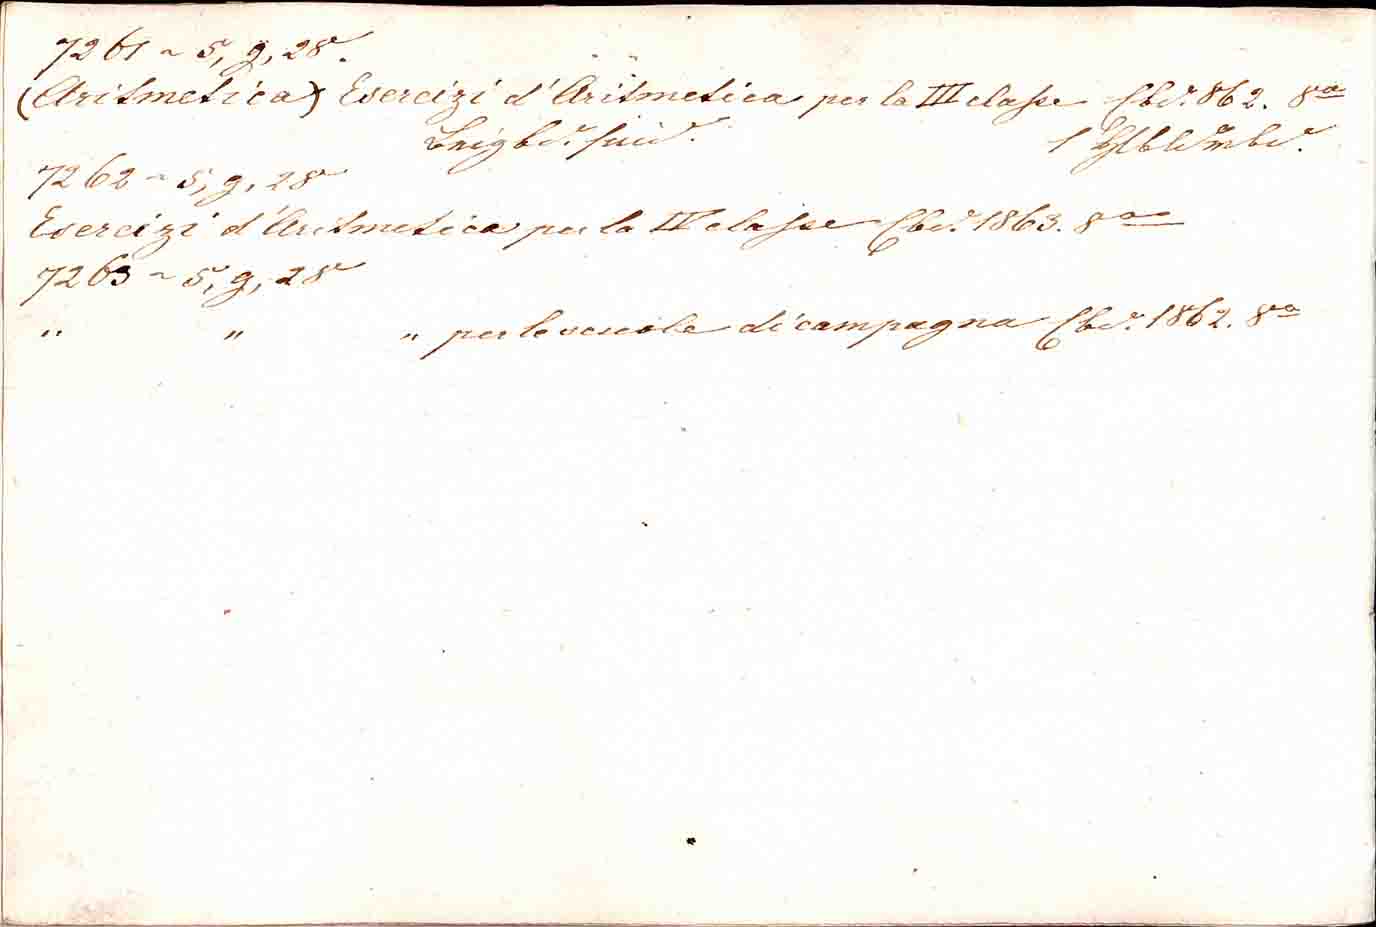 7261 ~ 5, g, 28.
(Aritmetica) Esercizi d'Aritmetica per la III classe 862. 8°
7262 ~ 5, g, 28
Esercizi d'Aritmetica per la IV classe 1863. 8°
7263 ~ 5, g, 28
" " " per le scuole di campagna 1862. 8°